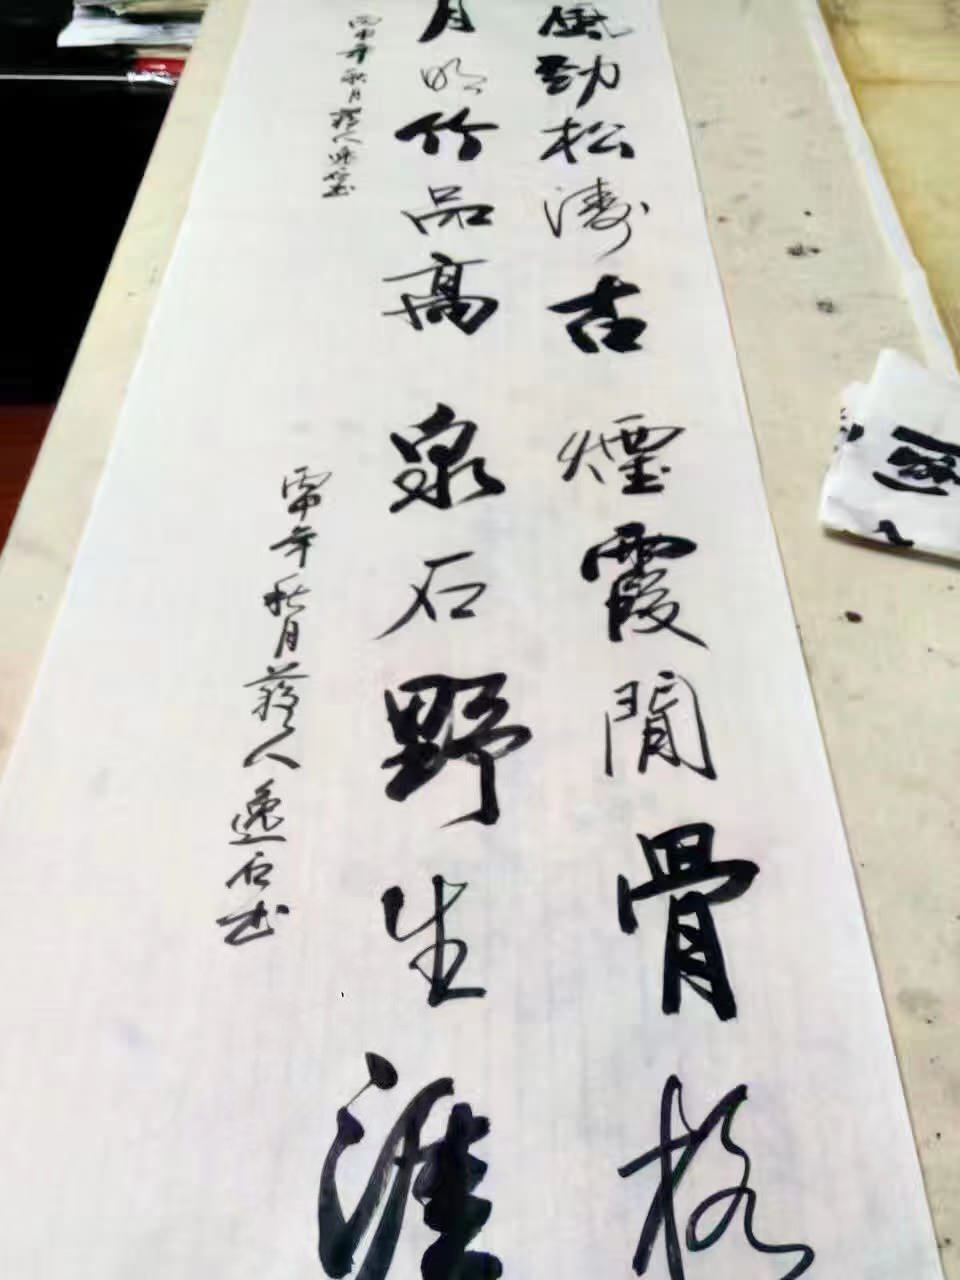 風勁松濤古
月明竹品高
丙申年秋月人逸石书
煙霞閒骨格
泉石野生涯
丙申年秋月人逸石书